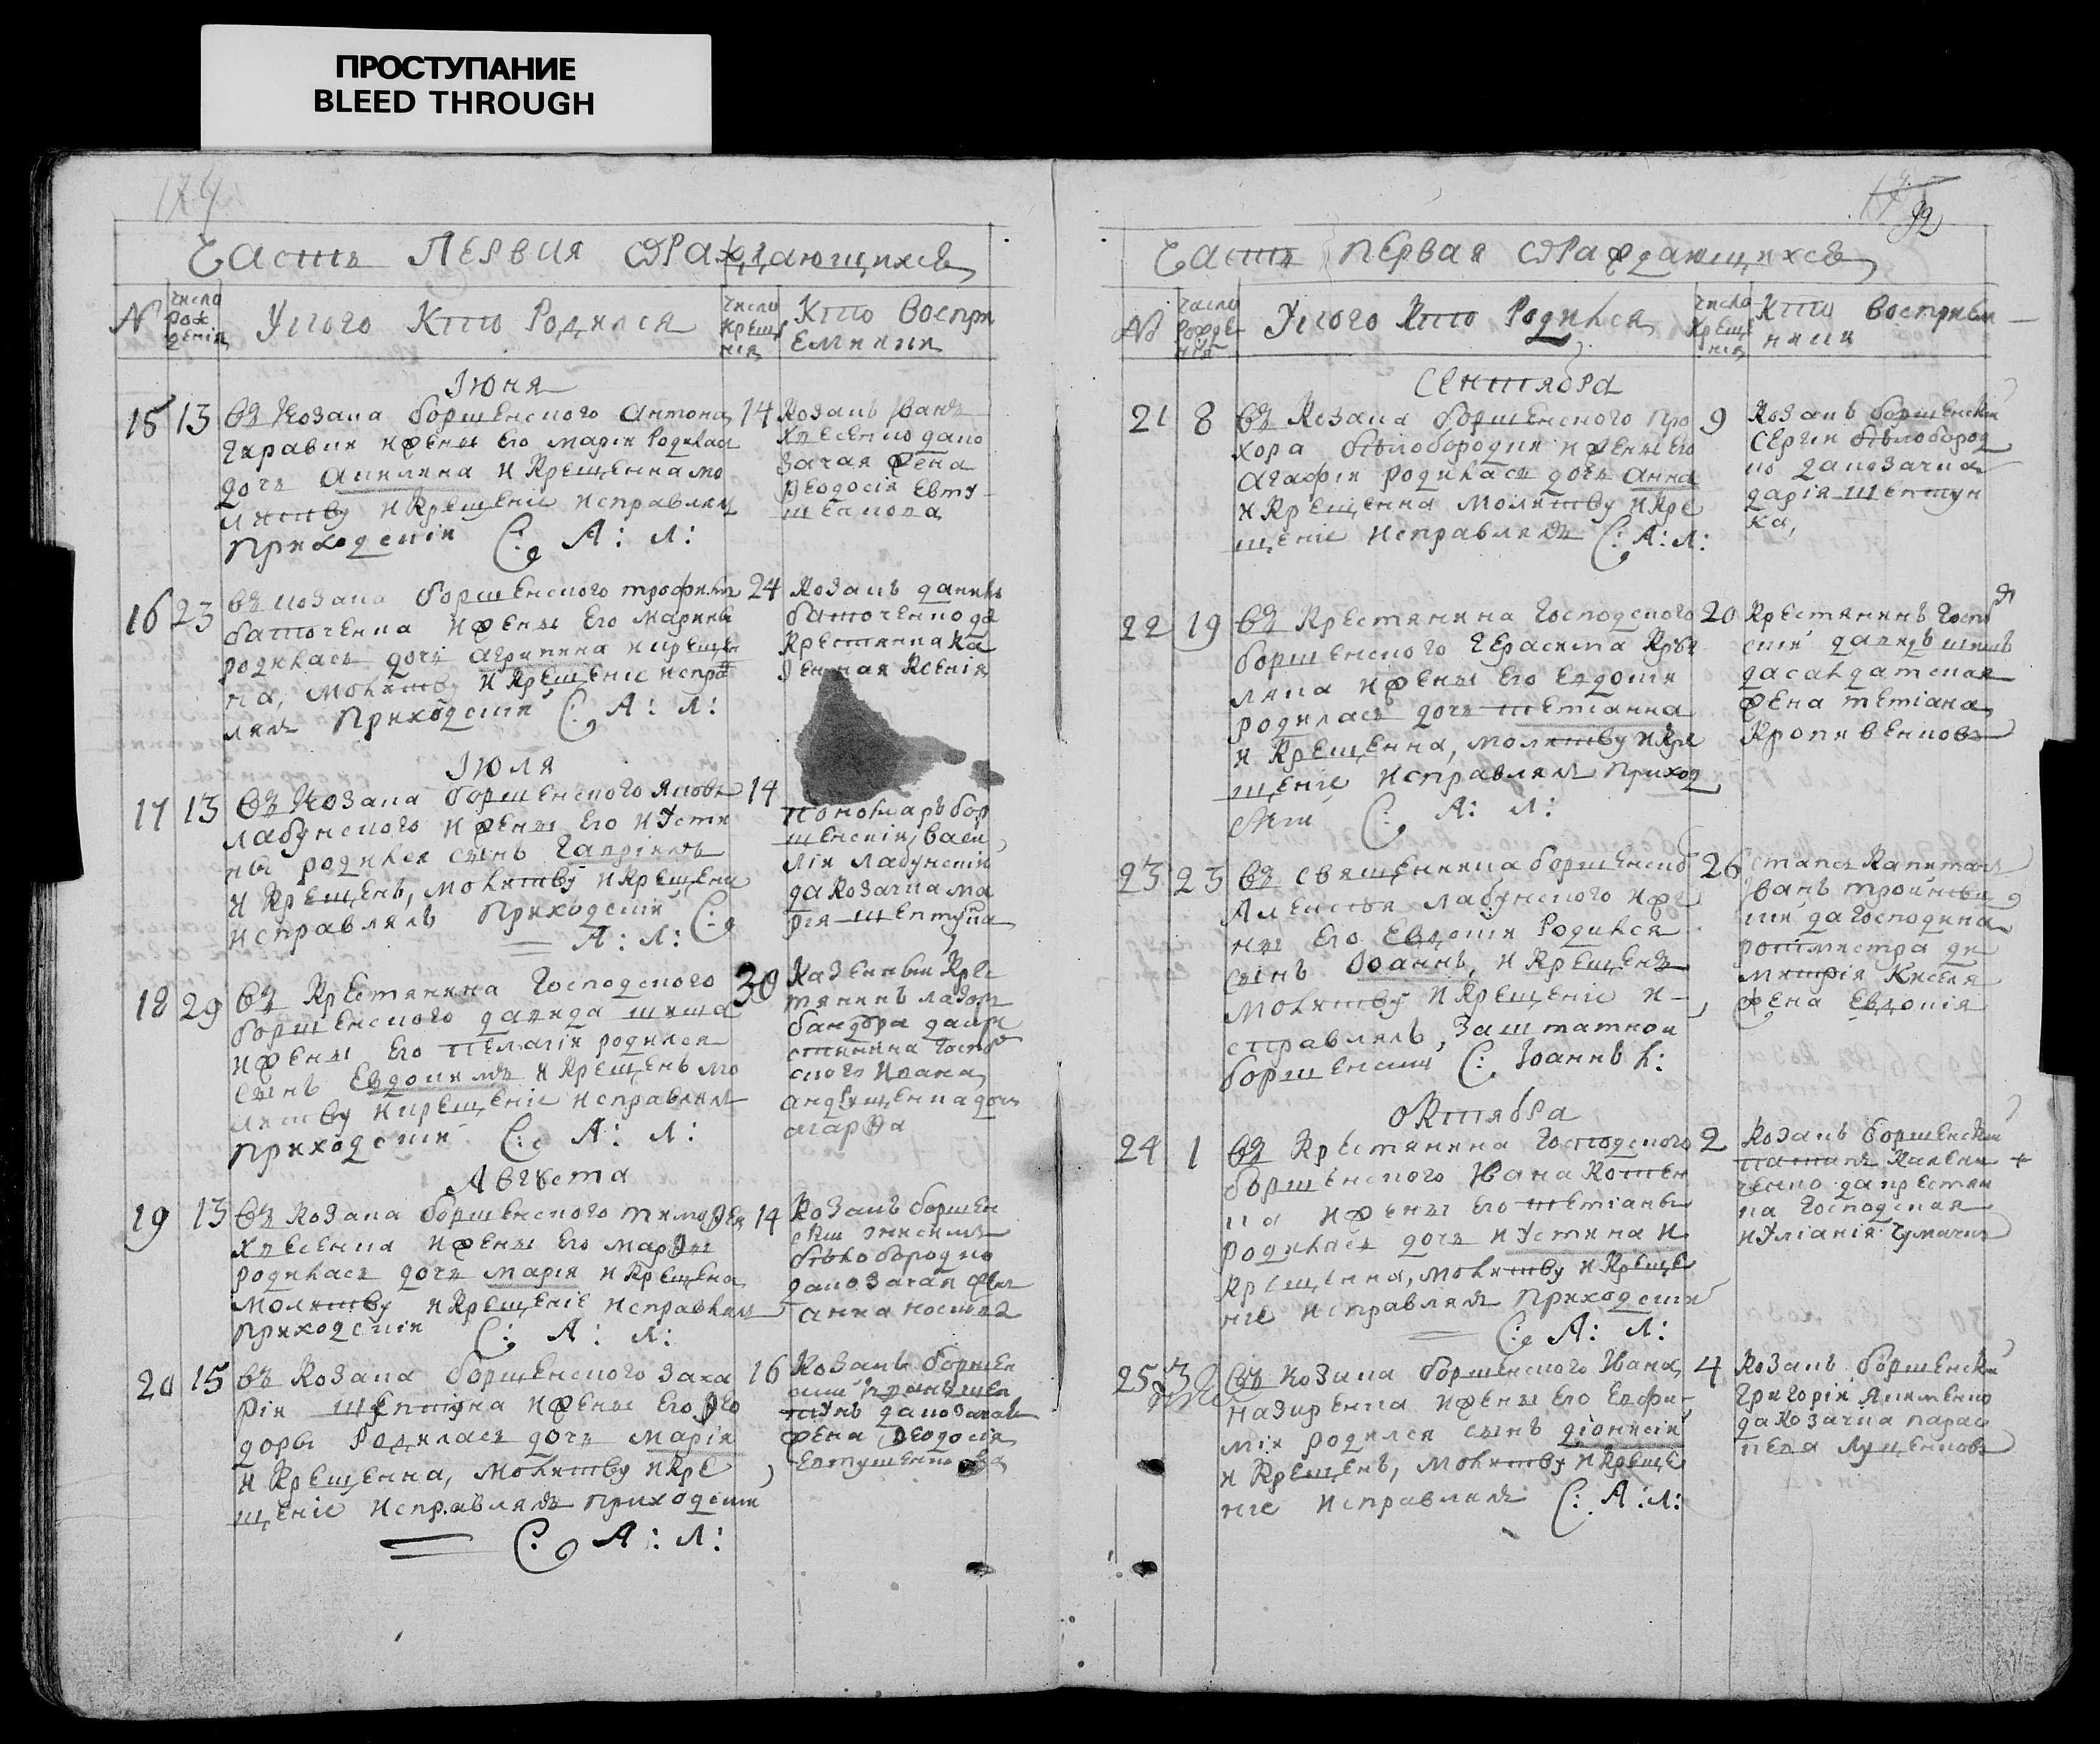 ПРОСТУПАНИЕ
BLEED THROUGH
174
Часть Первая ѡраждающихсѧ
№
число рождения
У кого Кто Родился
число крещения
Кто Воспри
емники
Іюня
15 13
въ козака боршенского Антона
и жены его марїи родилась
дочь Акилина и крещенна мо
литву и крещение исправлялъ
приходскїи С: А: Л:
14
козакъ Иванъ
да ко
зачая жена
Ѳеодосїя Евту
шенкова
16 23
въ козака боршенского трофима
баточенка и жены его марины
родилась дочь агрипина и креще
на, молитву и крещение испра
влялъ приходскїи С: А: Л:
24
козакъ данило
баточенко да
крестянка ка
зенная ксенїя
Іюля
17 13
въ козака боршенского якова
лабунского и жены его иусти
ны родился сынъ гаврїилъ
и крещенъ, молитву и крещение
исправлялъ приходскїи С:
А: Л:
14
пономаръ бор
шенскїи, васи
лїи лабунскїи
да козачка ма
рїя шептуна
18 29
въ крестянина господского
боршенского давида шила
и жены его пелагїи родился
сынъ Евдокимъ и крещенъ мо
литву и крещение исправлялъ
приходскїи С: А: Л:
30
казенныи кре
стянинъ лазор
бандура да кре
стянина госпо
ского ивана
андрущенка дочь
агафїя
Августа
19 13
въ козака боршенского тимоѳея
и жены его марѳы
родилась дочь марїя и крещена
молитву и крещение исправлялъ
приходскїи С: А: Л:
14
козакъ боршен
скїи
бѣлобородко
да козачая жена
анна
20 15
въ козака боршенского заха
рїи шептуна и жены его Ѳео
доры родилась дочь марїя
и крещенна, молитву и кре
щенїе исправлялъ приходскїи
С: А: Л:
16
козакъ боршен
скїи шеп
тунъ да козачая
жена Ѳеодосїя
Евтушенкова
92
Часть первая ѡраждающихсѧ
№
число рожде
нїя
У кого Кто Родился
число креще
нїя
Кто восприем
ники
Сентября
21 8
въ козака боршенского про
хора бѣлобородки и жены его
агафїи родилась дочь анна
и крещенна молитву и кре
щенїе исправлялъ С: А: Л:
9
козакъ боршенскїи
Сергїи бѣлобород
ко да козачка
дарїя шептун
ка,
22 19
въ крестянина господского
боршенского герасима
и жены его евдокїи
родилась дочь тетїанна
и крещенна, молитву и кре
щенїе исправлялъ приход
скїи С: А: Л:
20
крестянинъ госпо
скїи давидъ шило
да салдатская
жена тетїана
кропивенкова
23 23
въ священника боршенско
Алексїя лабунского и же
ны его Евдокїи родился
сынъ Іоаннъ, и крещенъ
молитву и крещенїе и-
справлялъ, заштатнои
боршенскїи С: Іоаннъ Л:
26
Иванъ
да господина
ротмистра ди
митрїя Киселя
жена Евдокїя
Октября
24 1
въ крестянина господского
боршенского Ивана Котен
ка и жены его тетїаны
родилась дочь иустина и
крещенна, молитву и креще
нїе исправлялъ приходскїи
С: А: Л:
2
козакъ боршенскїи
да крестян
ка господская
иулїанїя чумачка
25 3
въ козака боршенского Ивана
назиренка и жены его Евфи
мїи родился сынъ дїонисїи
и крещенъ, молитву и креще
нїе исправлялъ С: А: Л:
4
козакъ боршенскїи
григорїи якименко
да козачка парас
кева луценкова